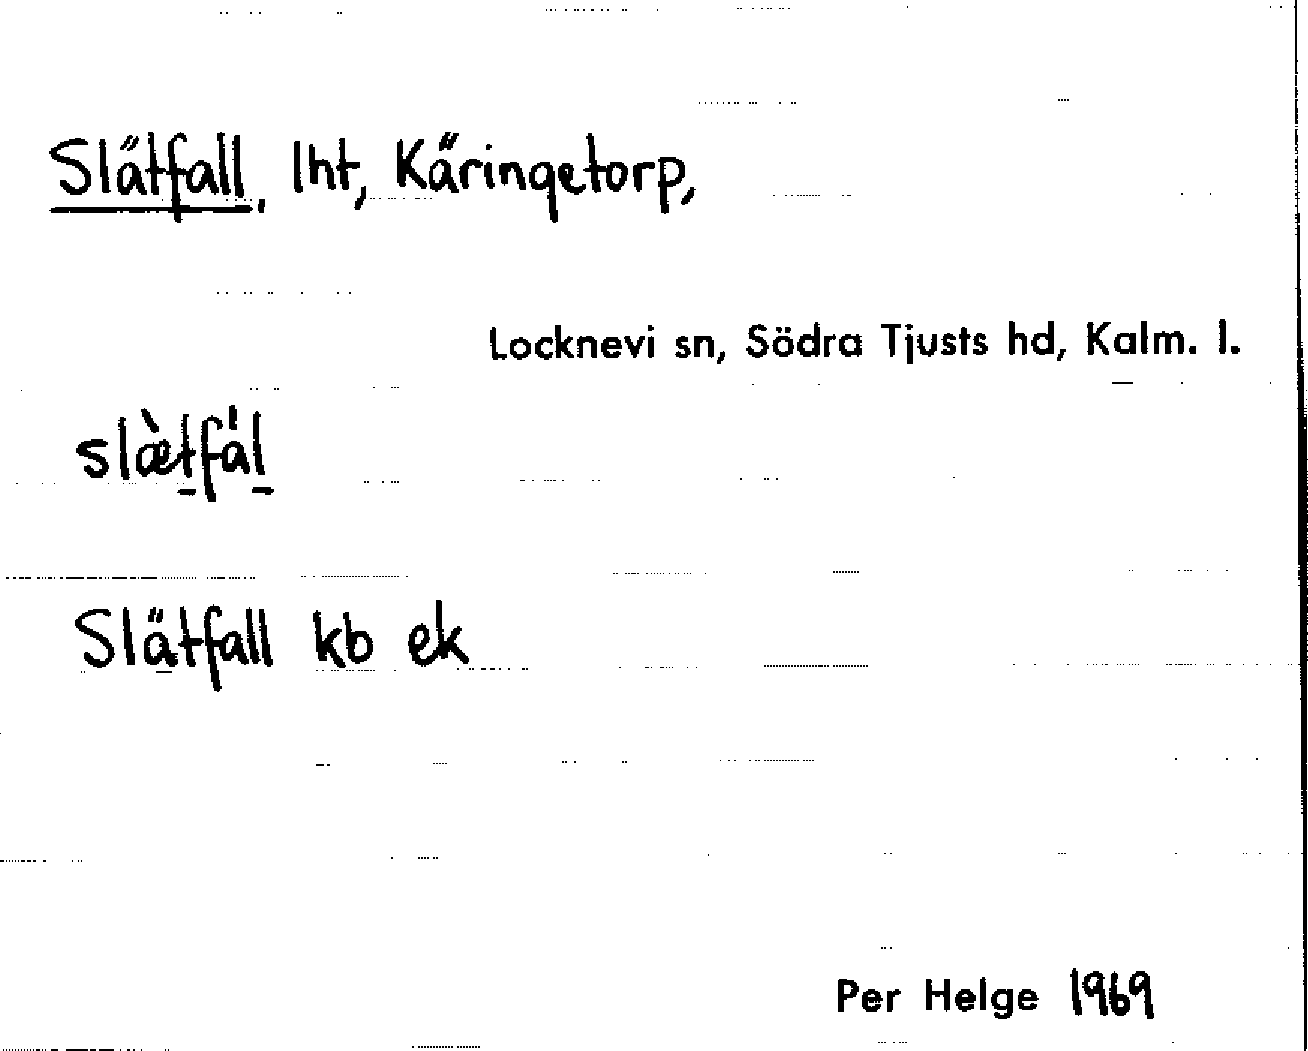 Slätfall, lht, Käringetorp,
Locknevi sn, Södra Tjusts hd, Kalm. l.
slæ̀t̠fàl̠
Slätfall kb ek
Per Helge 1969